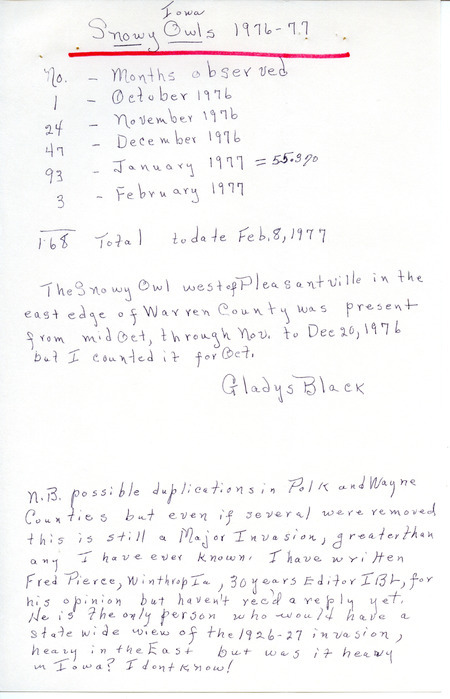 Iowa
Snowy Owls 1976-77
No. - Months observed
1 - October 1976
24 - November 1976
47 - December 1976
93 - January 1977 = 55.3%
3 - February 1977
168 Total to date Feb. 8, 1977
The Snowy Owl west of Pleasantville in the
east edge of Warren County was present
from mid Oct, through Nov. to Dec 20, 1976
but I counted it for Oct.
Gladys Black
N.B. possible duplications in Polk and Wayne
Counties but even if several were removed
this is still a Major Invasion, greater than
any I have ever known. I have written
Fred Pierce, Winthrop Ia, 30 years Editor IBL, for
his opinion but haven't rec'd a reply yet.
He is the only person who would have a
state wide view of the 1926-27 invasion,
heavy in the East but was it heavy
in Iowa? I dont know!